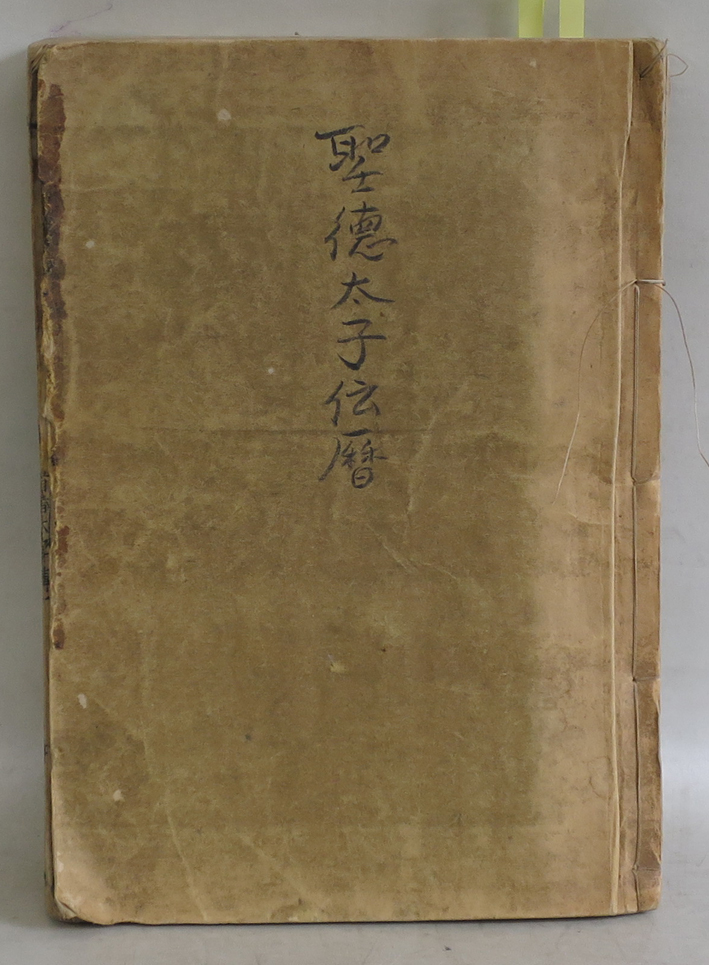 聖德太子伝暦